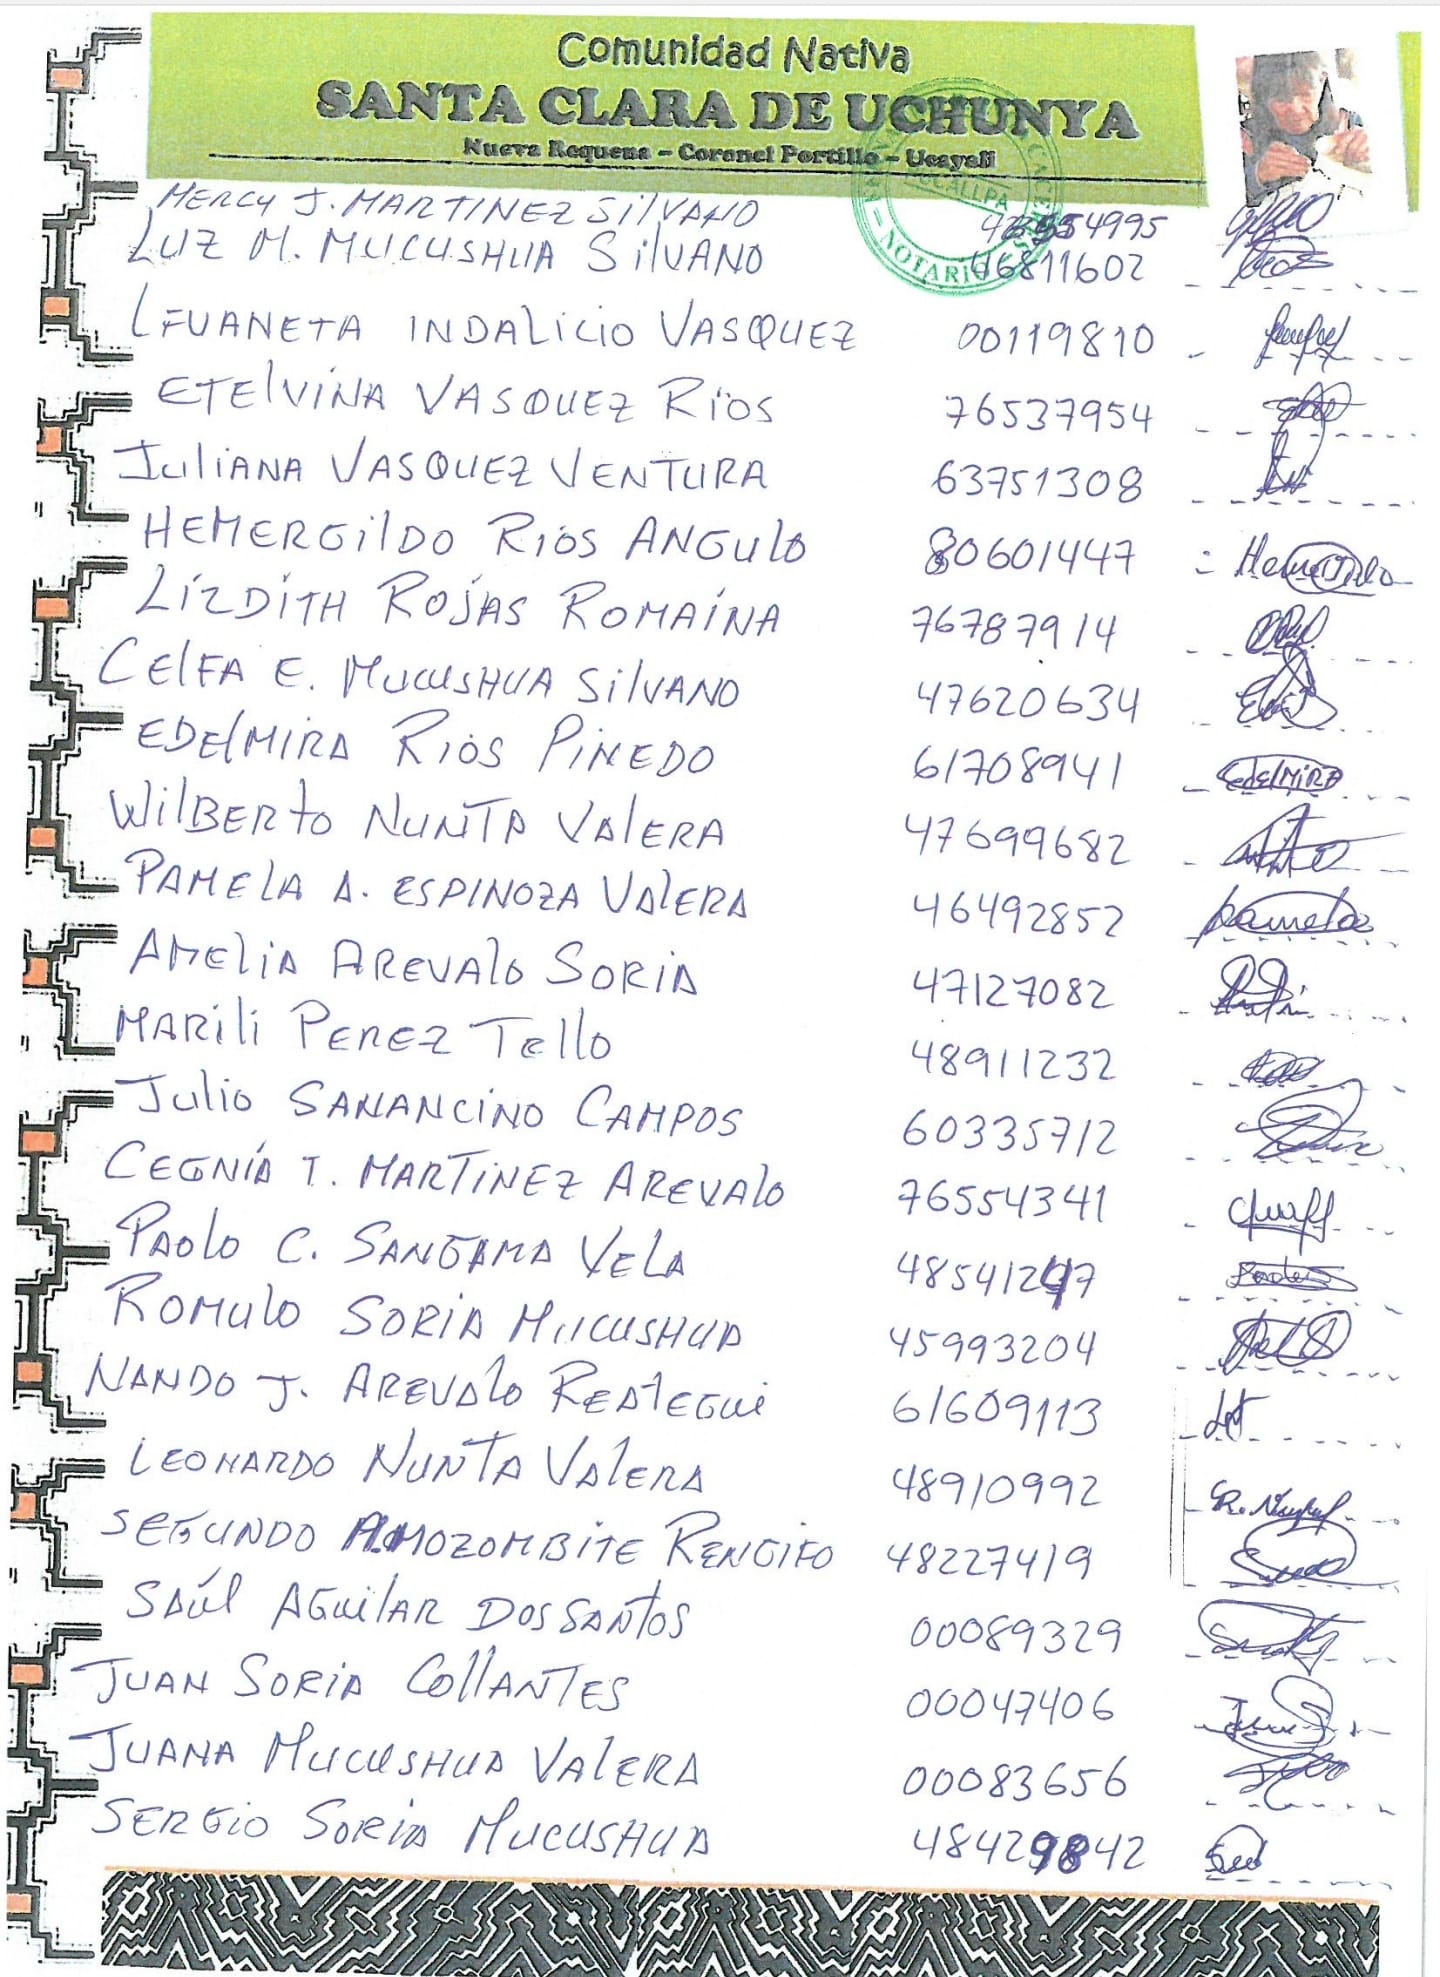 Comunidad Nativa
SANTA CLARA DE UCHUNYA
Nueva Requena - Coronel Portillo - Ucayali
PUCALLPA
NOTARIO
MERCY J. MARTINEZ SilVANO 4995
LUZ M. MUCUSHUA SilVANO 46811602
INDALICIO VASQUEZ 00119810
ETElVINA VASQUEZ RíOS 76537954
JuliANA VASQUEZ VENTURA 63751308
HEMERGilDO RiOS ANGUlO 80601447
LIZDITH ROJAS ROMAINA 76787914
CElFA E. MUCUSHUA SilVANO 47620634
EDElMIRA RIOS PINEDO 61708941
WilBERTO NUNTA VAlERA 47699682
PAMElA A. ESPINOZA VAlERA 46492852
AMEliA AREVAlO SORIA 47127082
MARili PEREZ TEllO 48911232
JuliO SANANCINO CAMPOS 60335712
CEGNIA T. MARTINEZ AREVAlO 76554341
PAOlO C. SANGAMA VElA 48541247
ROMUlO SORIA MUCUSHUA 45993204
NANDO J. AREVAlO REATEGUi 61609113
LEONARDO NUNTA VAlERA 48910992
SEGUNDO AMOZOMBITE RENGIFO 48227419
SAúl AGUilAR DOS SANTOS 00089329
JUAN SORIA COllANTES 00047406
JUANA MUCUSHUA VAlERA 00083656
SERGIO SORIA MUCUSHUA 48429842